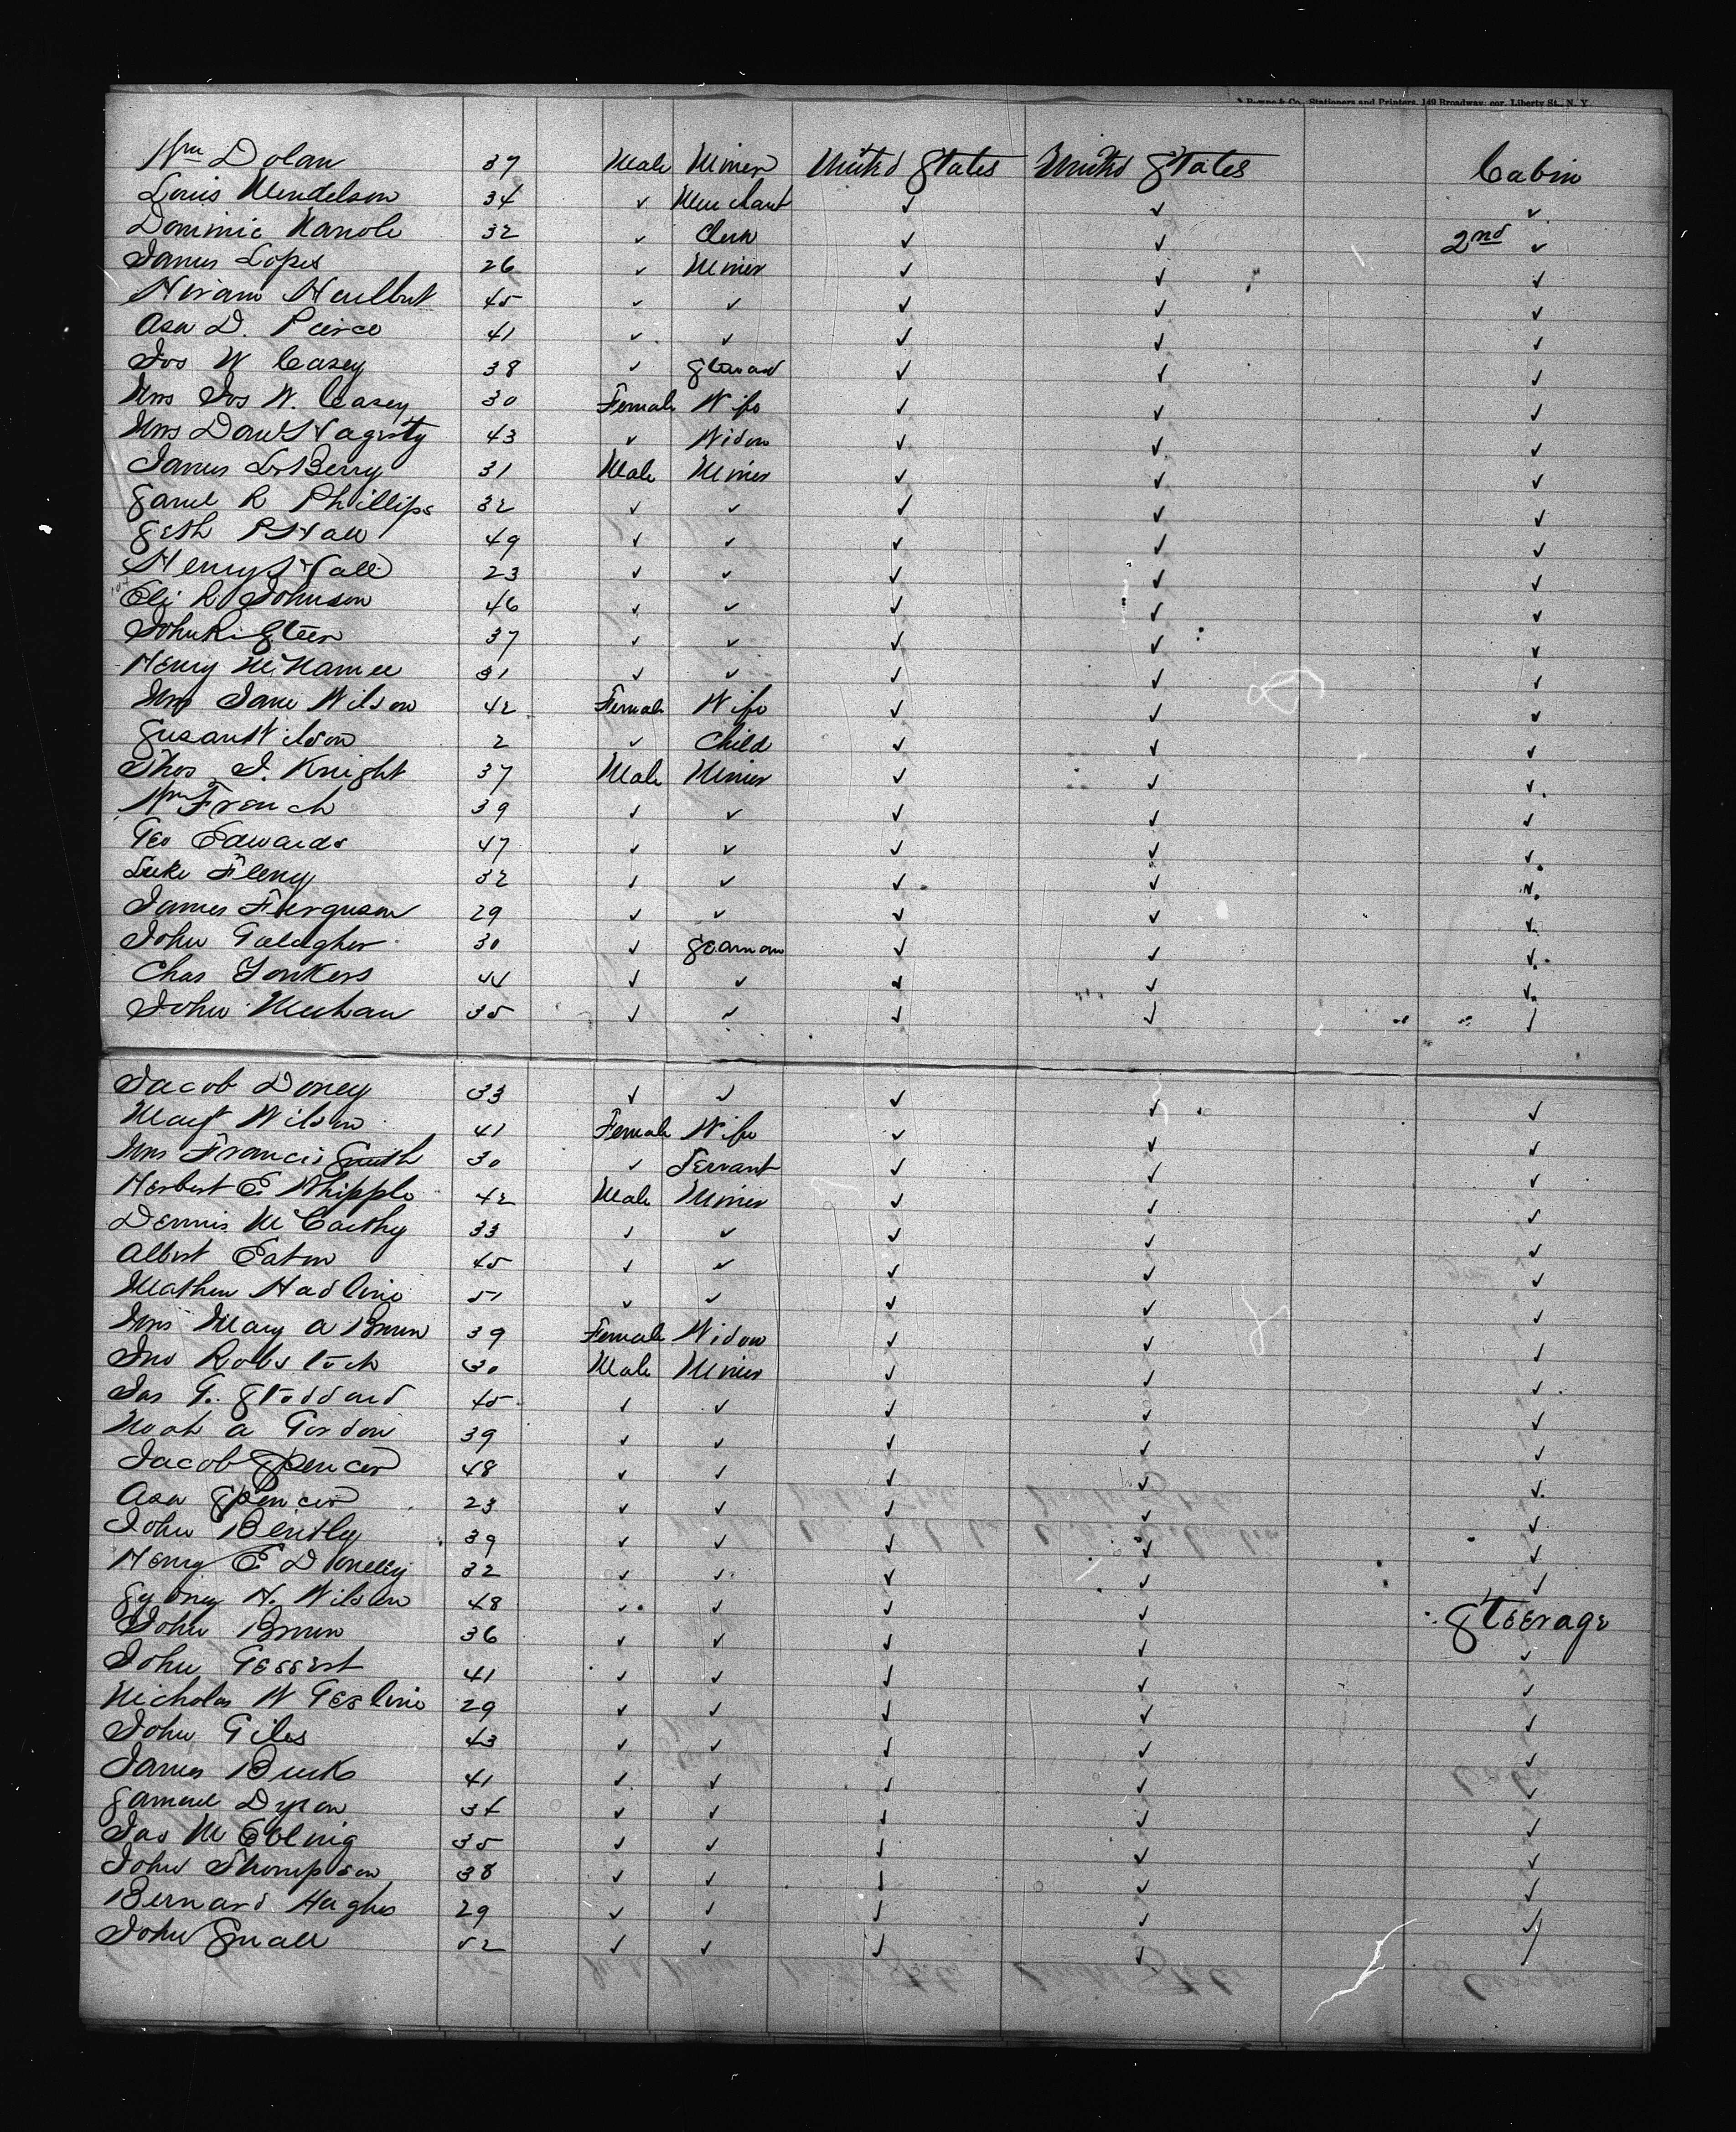 & Co., Stationers and Printers, 149 Broadway, cor. Liberty St., N. Y.
Wm Dolan 37 Male Miner United States United States Cabin
Louis Mendelson 34 ✓ Merchant ✓ ✓ ✓
Dominic 32 ✓ Clerk ✓ ✓ 2nd ✓
James Lopes 26 ✓ Miner ✓ ✓ ✓
Hiram Hurlbut 45 ✓ ✓ ✓ ✓ ✓
Asa D. Peirce 41 ✓ ✓ ✓ ✓ ✓
Jos W Casey 38 ✓ ✓ ✓ ✓
Mrs Jos W. Casey 30 Female Wife ✓ ✓ ✓
Mrs Danl Hagerty 43 ✓ Widow ✓ ✓ ✓
James L Berry 31 Male Miner ✓ ✓ ✓
Saml R Phillips 32 ✓ ✓ ✓ ✓ ✓
Seth P Hall 49 ✓ ✓ ✓ ✓ ✓
Henry Hall 23 ✓ ✓ ✓ ✓ ✓
Eli R Johnson 46 ✓ ✓ ✓ ✓ ✓
John R. Steen 37 ✓ ✓ ✓ ✓ ✓
Henry McNamee 31 ✓ ✓ ✓ ✓ ✓
Mrs Jane Wilson 42 Female Wife ✓ ✓ ✓
Susan Wilson 2 ✓ Child ✓ ✓ ✓
Thos J. Knight 37 Male Miner ✓ ✓ ✓
Wm French 39 ✓ ✓ ✓ ✓ ✓
Geo Edwards 47 ✓ ✓ ✓ ✓ ✓
Luke Fleny 32 ✓ ✓ ✓ ✓ ✓
James Ferguson 29 ✓ ✓ ✓ ✓ ✓
John Galagher 30 ✓ Seaman ✓ ✓ ✓
Chas Yonkers 44 ✓ ✓ ✓ ✓ ✓
John Meehan 35 ✓ ✓ ✓ ✓ ✓
Jacob Doney 33 ✓ ✓ ✓ ✓ ✓
Mary Wilson 41 Female Wife ✓ ✓ ✓
Mrs Francis Smith 30 ✓ Servant ✓ ✓ ✓
Herbert E Whipple 42 Male Miner ✓ ✓ ✓
Dennis McCarthy 33 ✓ ✓ ✓ ✓ ✓
Albert Eaton 45 ✓ ✓ ✓ ✓ ✓
Mathew Hadline 51 ✓ ✓ ✓ ✓ ✓
Mrs Mary A Brown 39 Female Widow ✓ ✓ ✓
Jno Robstock 30 Male Miner ✓ ✓ ✓
Jas G. Stoddard 45 ✓ ✓ ✓ ✓ ✓
Noah A Gordon 39 ✓ ✓ ✓ ✓ ✓
Jacob Spencer 48 ✓ ✓ ✓ ✓ ✓
Asa Spencer 23 ✓ ✓ ✓ ✓ ✓
John Bently 39 ✓ ✓ ✓ ✓ ✓
Henry E Donelly 32 ✓ ✓ ✓ ✓ ✓
Sydney H. Wilson 48 ✓ ✓ ✓ ✓ Steerage
John Brown 36 ✓ ✓ ✓ ✓ ✓
John Gessert 41 ✓ ✓ ✓ ✓ ✓
Nicholas W Gesline 29 ✓ ✓ ✓ ✓ ✓
John Giles 43 ✓ ✓ ✓ ✓ ✓
James Burk 41 ✓ ✓ ✓ ✓ ✓
Samuel Dyson 34 ✓ ✓ ✓ ✓ ✓
Jas M Ebling 35 ✓ ✓ ✓ ✓ ✓
John Thompson 38 ✓ ✓ ✓ ✓ ✓
Bernard Hughes 29 ✓ ✓ ✓ ✓ ✓
John Small 52 ✓ ✓ ✓ ✓ ✓